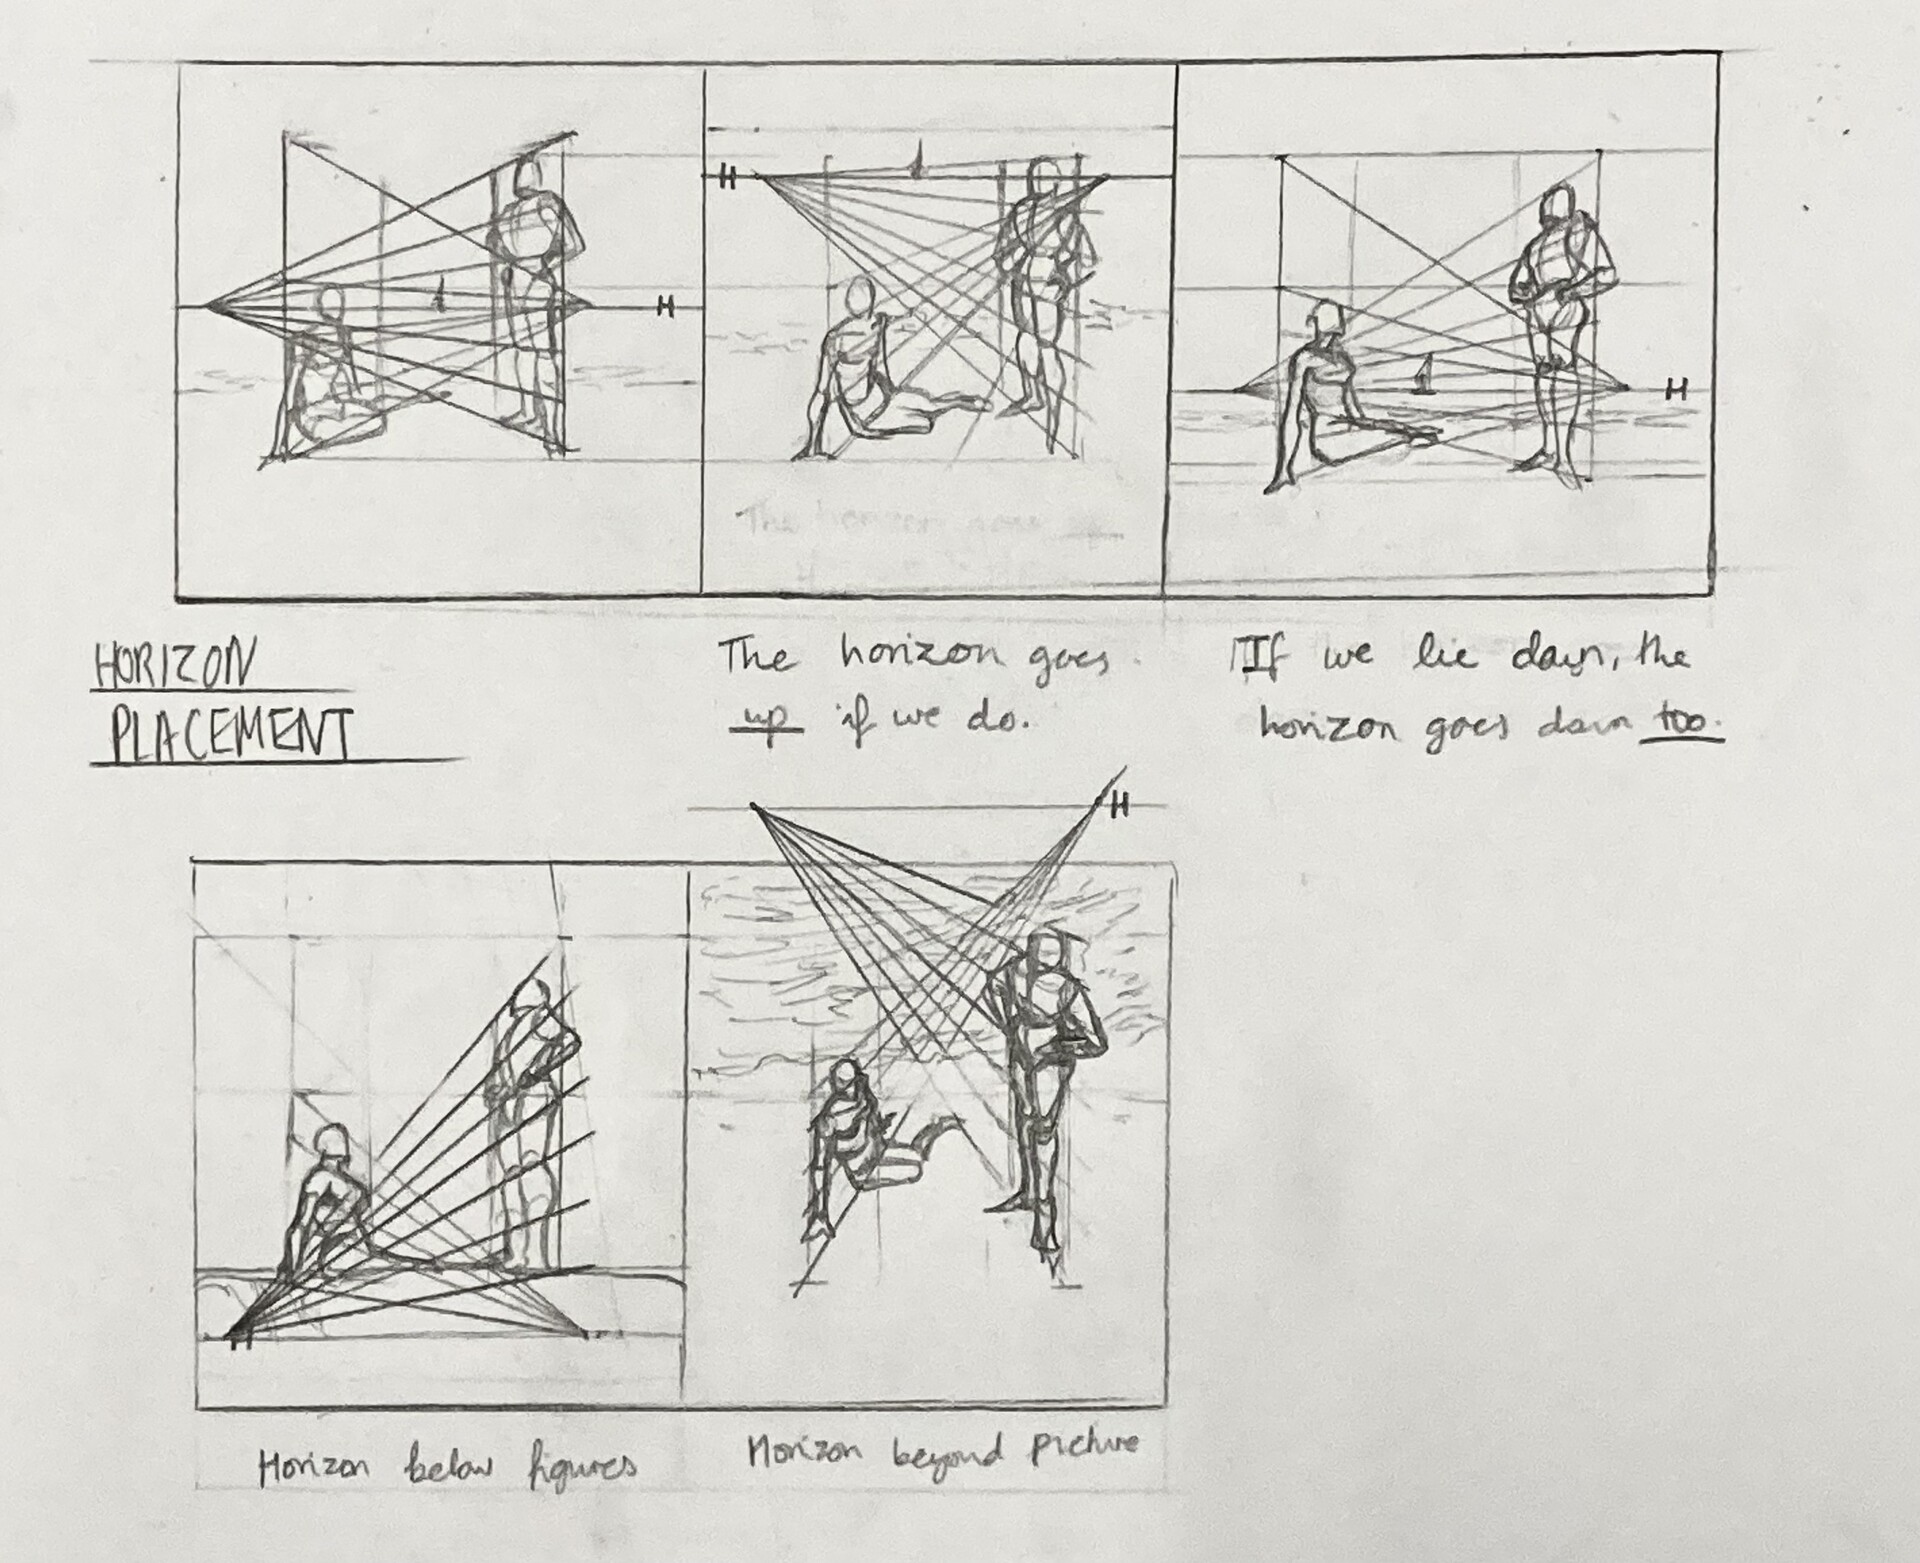 H
H
H
The horizon goes
HORIZON
PLACEMENT
The horizon goes
up if we do.
If we lie down, the
horizon goes down too.
H
H
Horizon below figures
Horizon beyond picture